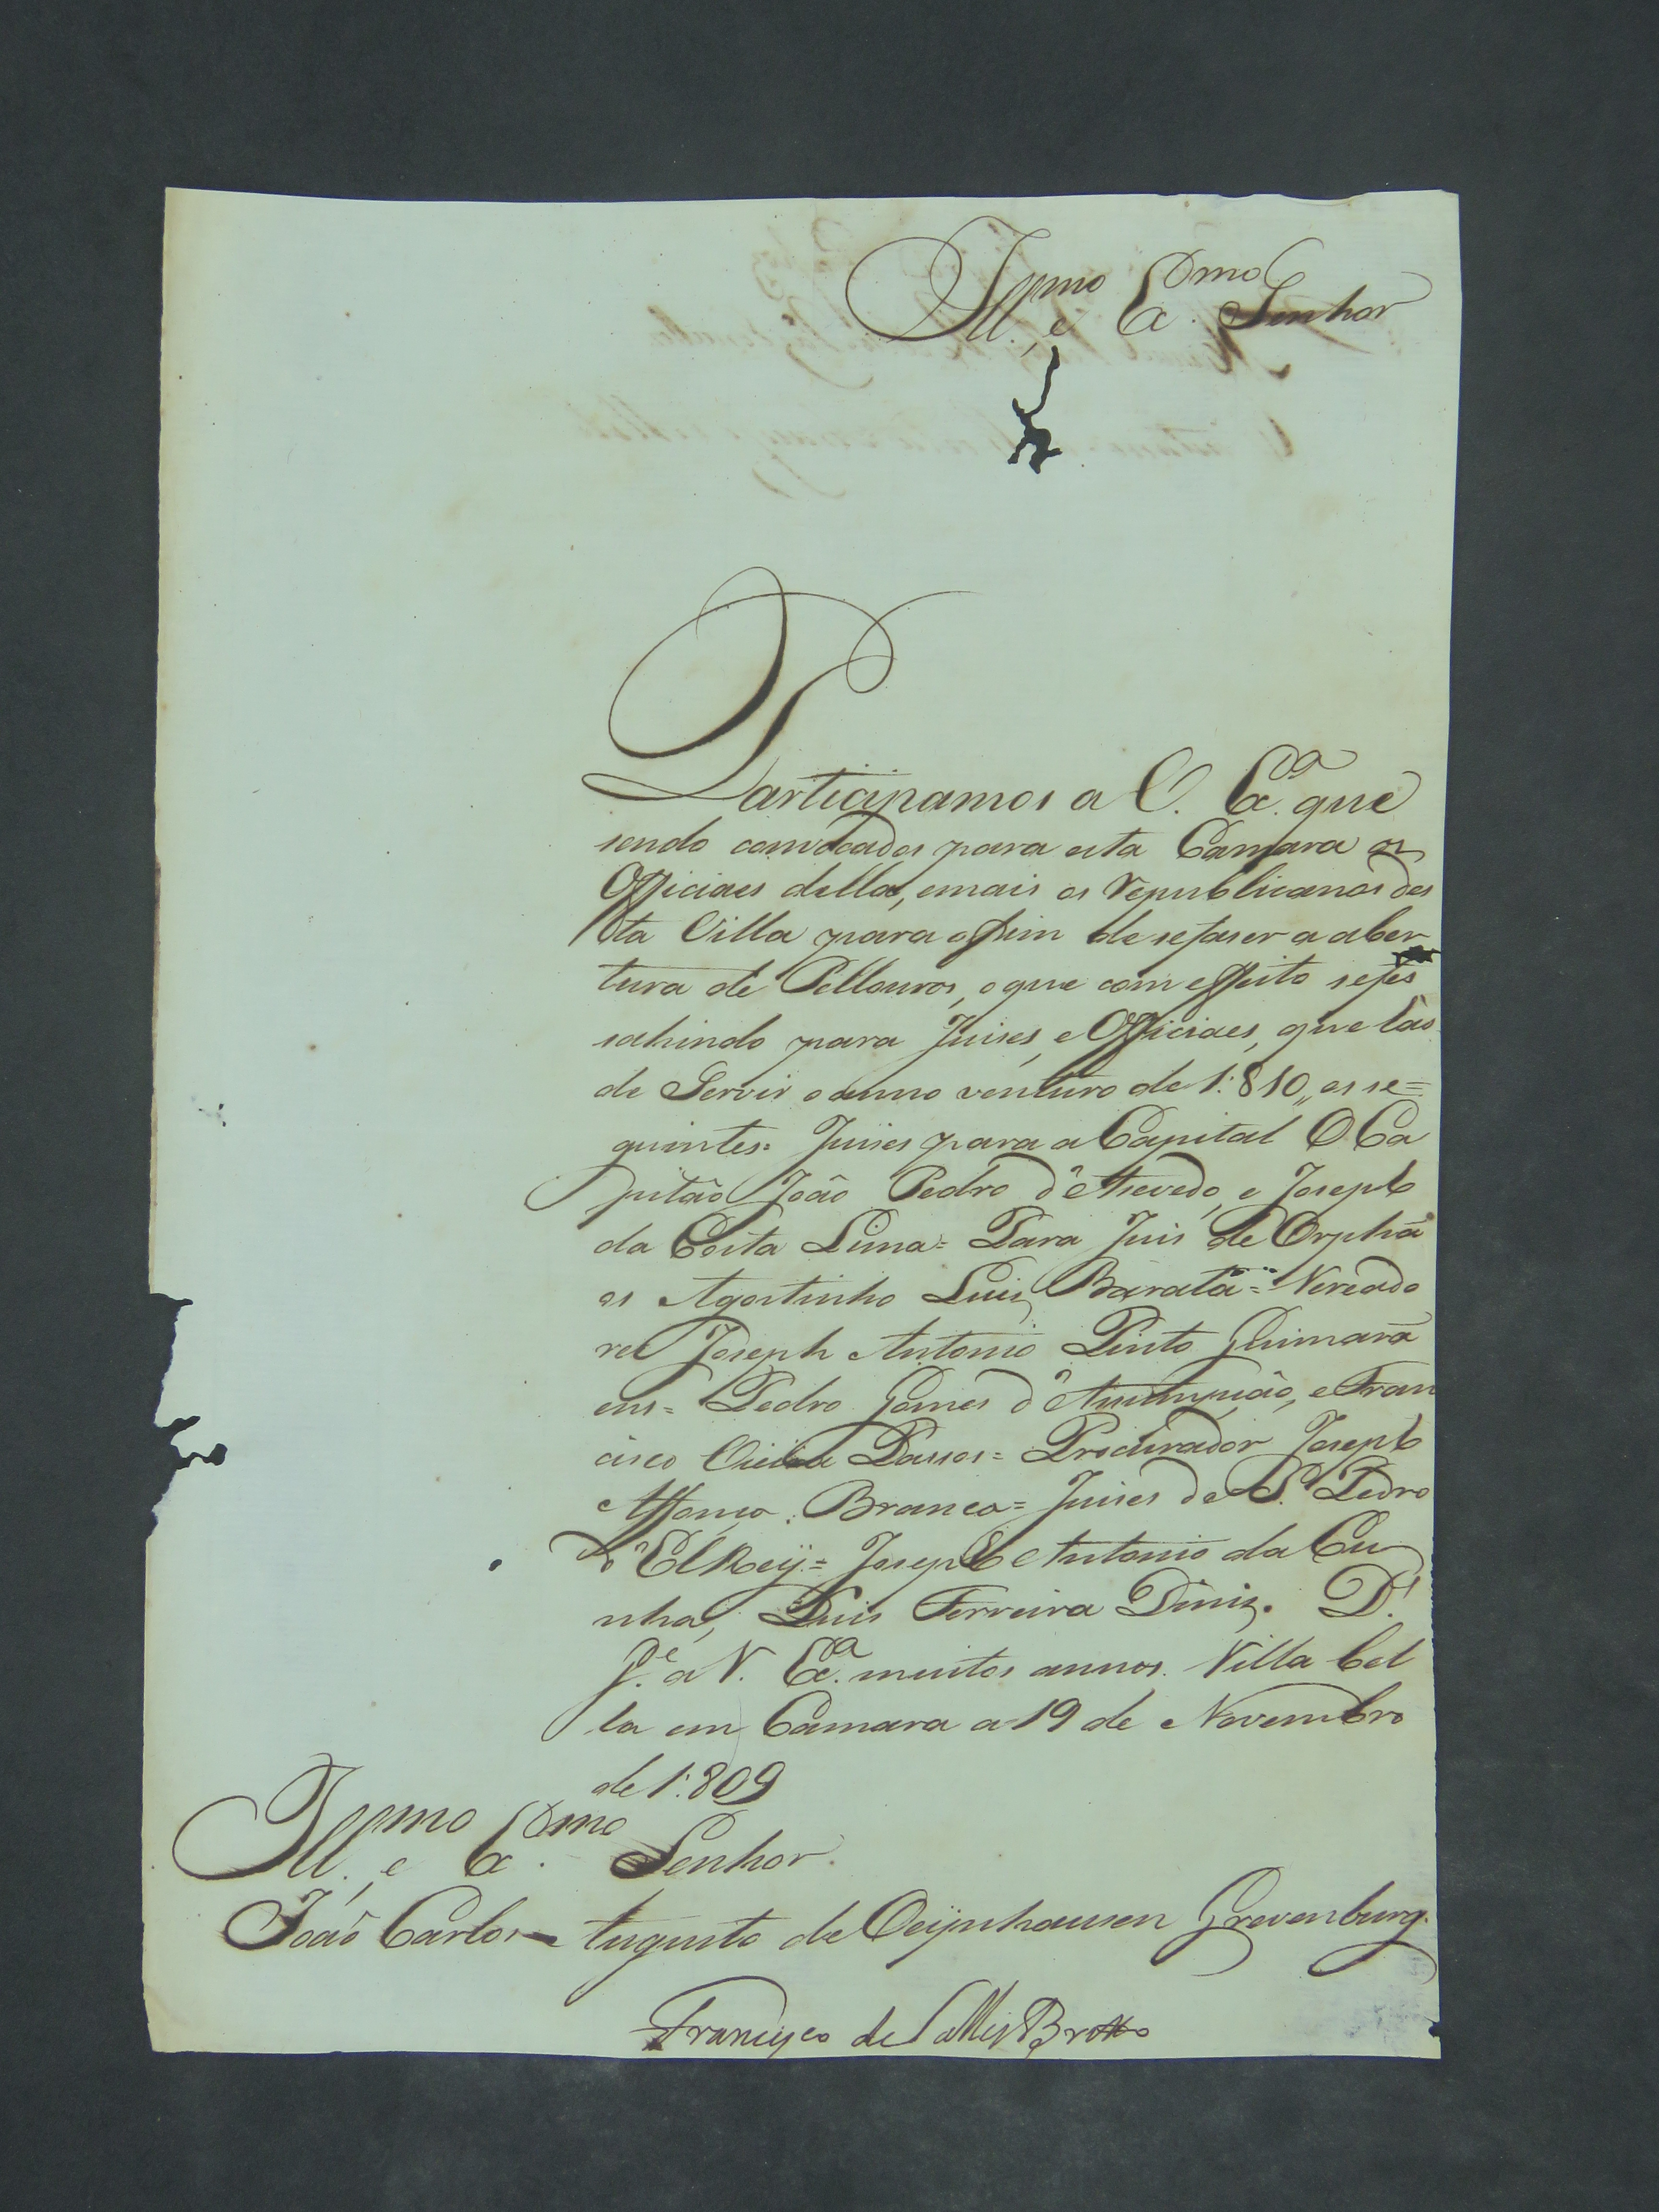 Ill.mo e Ex.mo Senhor
Participamos a V. Ex.a que
sendo convocados para esta Camara os
Officiaes della, emais os Republicanos des
ta Villa para ofim de sefaser a aber
tura de Pellouros, oque com effeito sefes
sahindo para Juises, e Officiaes, que hão
de Servir oanno venturo de 1:810,, os se=
guintes: Juises para a Capital O Ca
pitão João Pedro d'Asevedo, e Joseph
da Costa Lima= Para Juis de Orphã
os Agostinho Luis Barata= Vereado
res Joseph Antonio Pinto Guimarã
ens= Pedro Gomes d'Assumpção, e Fran
cisco Passos= Procurador Joseph
Affonço Branco= Juises de S. Pedro
d'ElReÿ= Joseph Antonio da Cu
nha, Luis Ferreira Diniz. D.s
G.e a V. Ex.a muitos annos. Villa bel
la em Camara a 19 de Novembro
de 1:809
Ill.mo e Ex.mo Senhor
João Carlos Augusto de Oeÿnhausen Grevenburg.
Francisco de Salles Britto